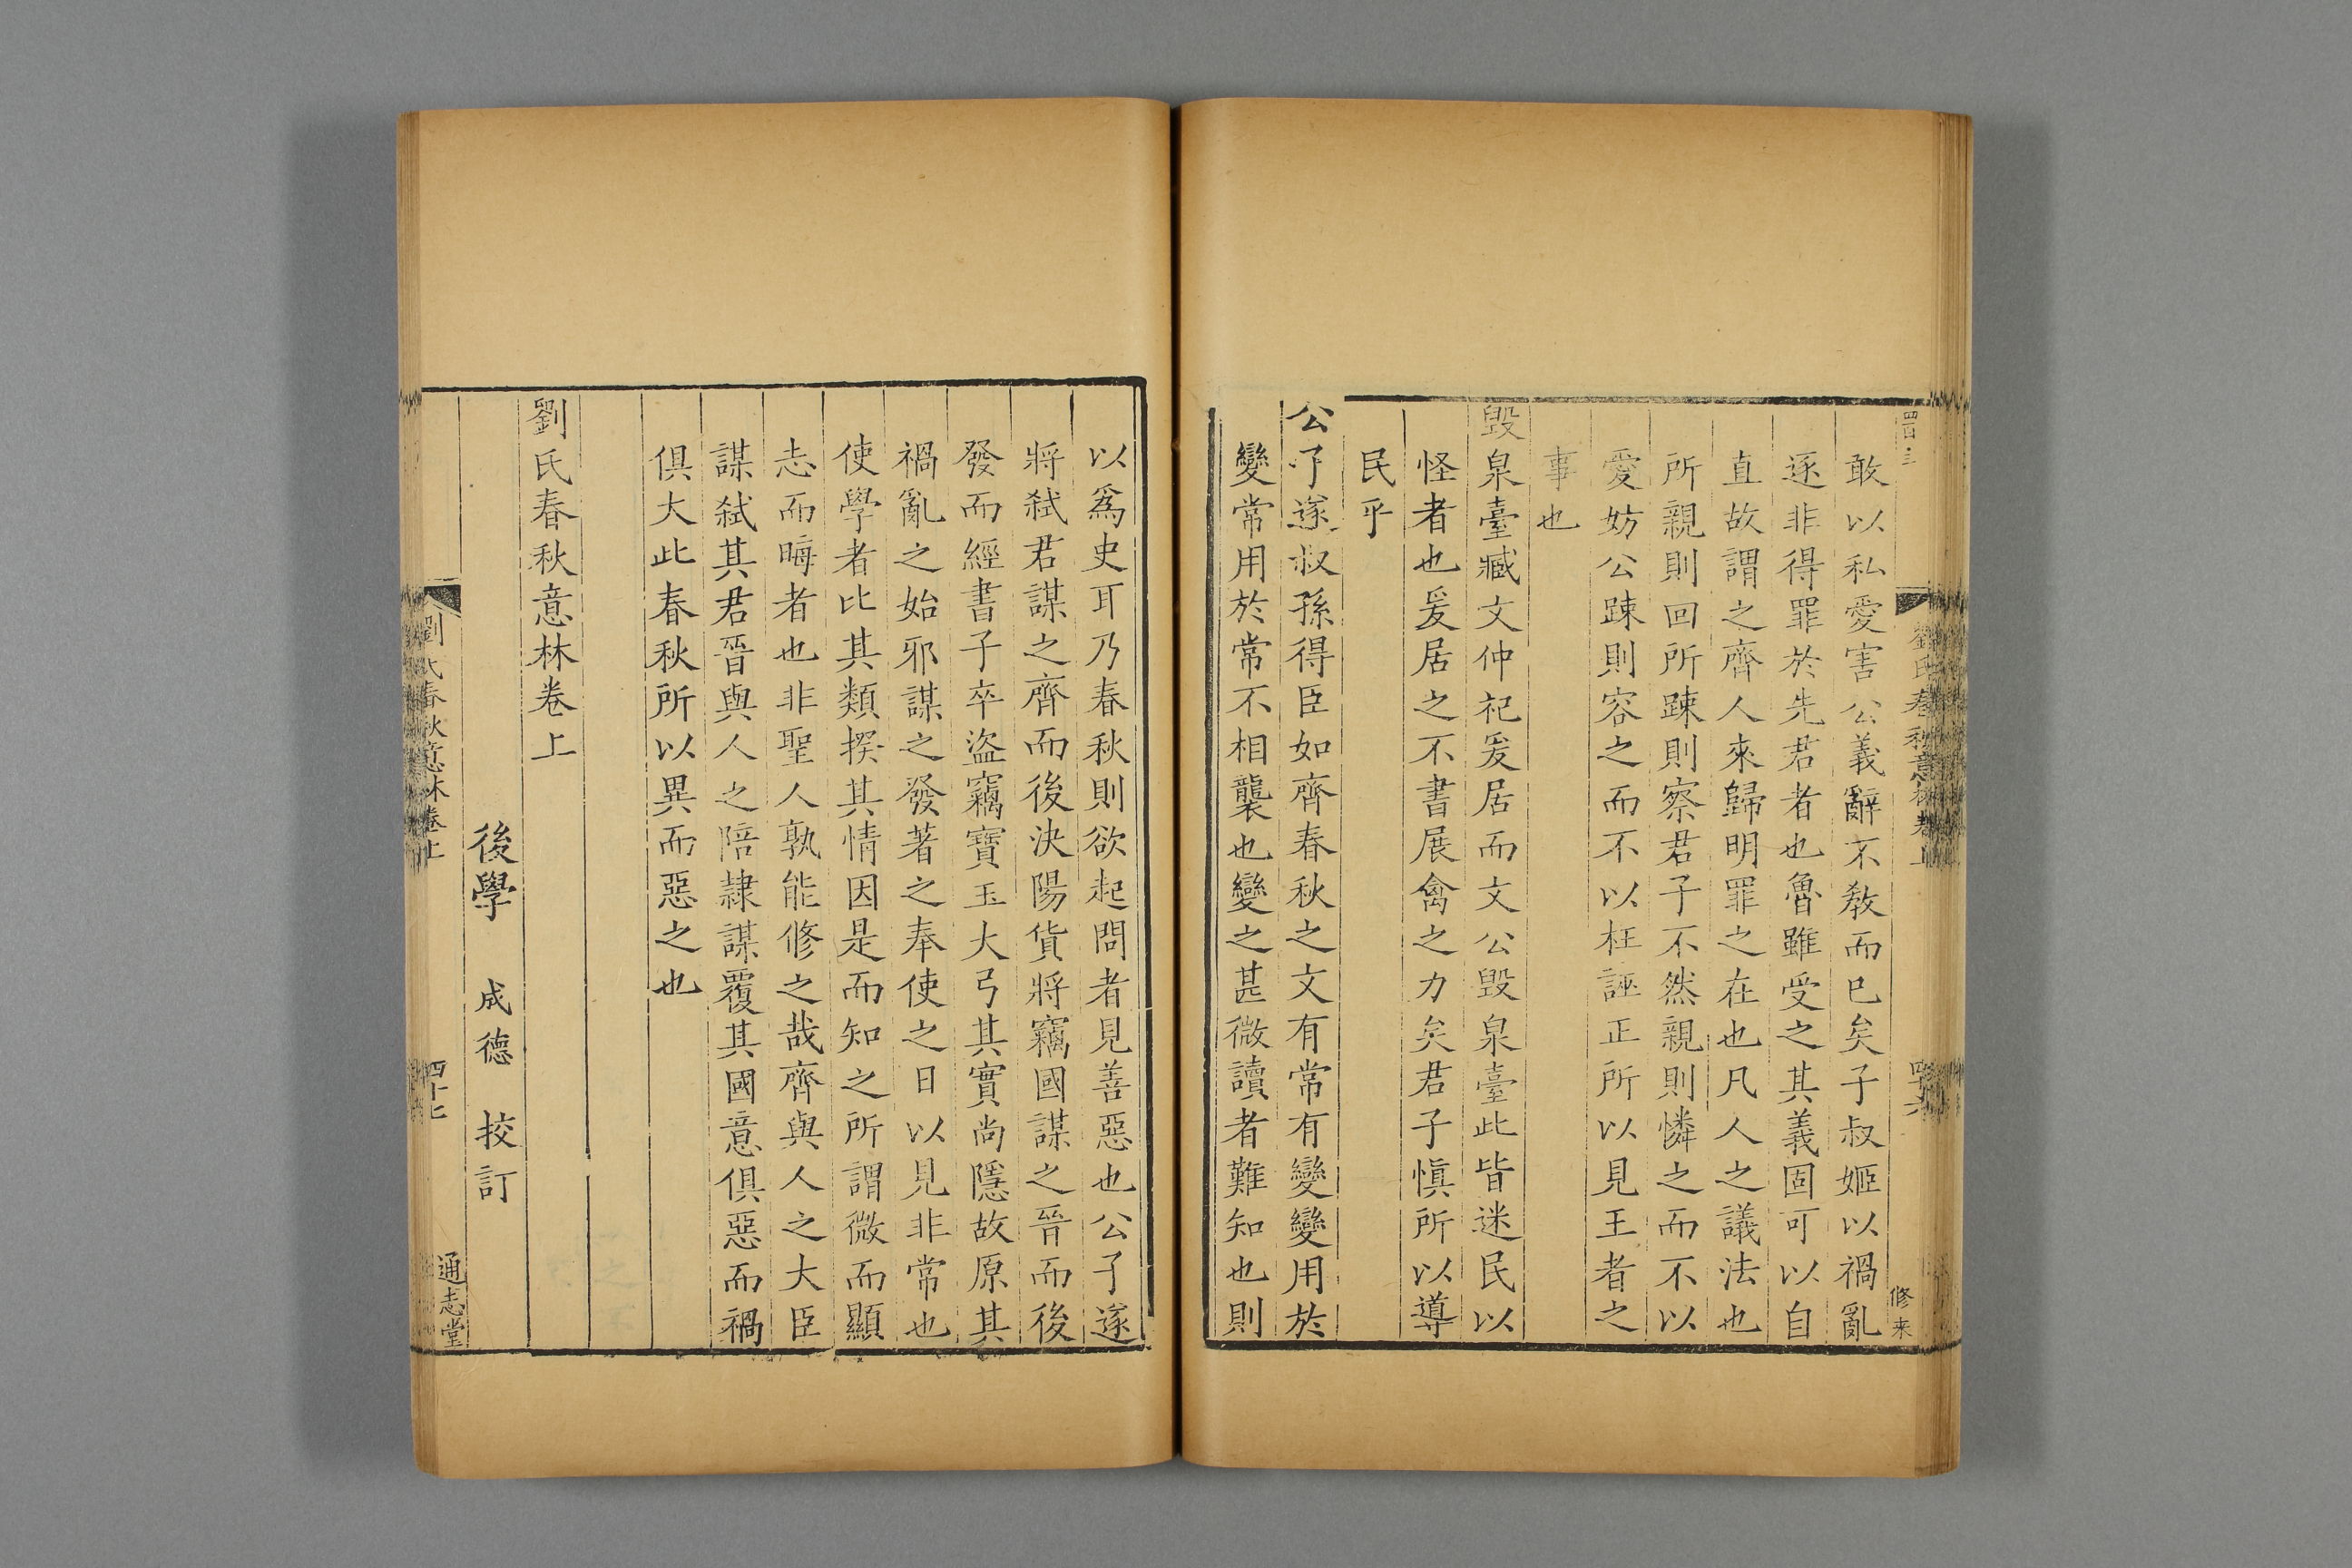 敢以私愛害公義辭不教而已矣子叔姬以禍亂
逐非得罪於先君者也魯雖受之其義固可以自
直故謂之齊人來歸明罪之在也凡人之議法也
所親則回所踈則察君子不然親則憐之而不以
愛妨公踈則容之而不以枉誣正所以見王者之
事也
毀泉臺臧文仲祀爰居而文公毀泉臺此皆迷民以
怪者也爰居之不書展禽之力矣君子愼所以導
民乎
公子遂叔孫得臣如齊春秋之文有常有變變用於
變常用於常不相襲也變之甚微讀者難知也則
以爲史耳乃春秋則欲起問者見善惡也公子遂
將弑君謀之齊而後決陽貨將竊國謀之晉而後
發而經書子卒盜竊寶玉大弓其實尚隱故原其
禍亂之始邪謀之發著之奉使之日以見非常也
使學者比其類揆其情因是而知之所謂微而顯
志而晦者也非聖人孰能修之哉齊與人之大臣
謀弑其君晉與人之陪隷謀覆其國意俱惡而禍
俱大此春秋所以異而惡之也
劉氏春秋意林卷上
後學 成德 挍訂
劉氏春秋意林卷上
四十七
通志堂